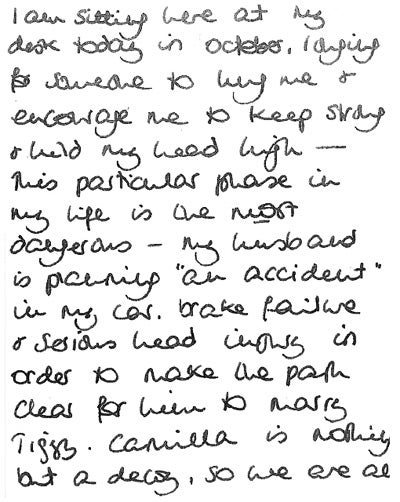 I am sitting here at my
desk today in october, longing
for someone to hug me &
encourage me to keep strong
& hold my head high —
This particular phase in
my life is the most
dangerous — my husband
is planning "an accident"
in my car. brake failure
& serious head injury in
order to make the path
clear for him to marry
Tiggy. Camilla is nothing
but a decoy, so we are al